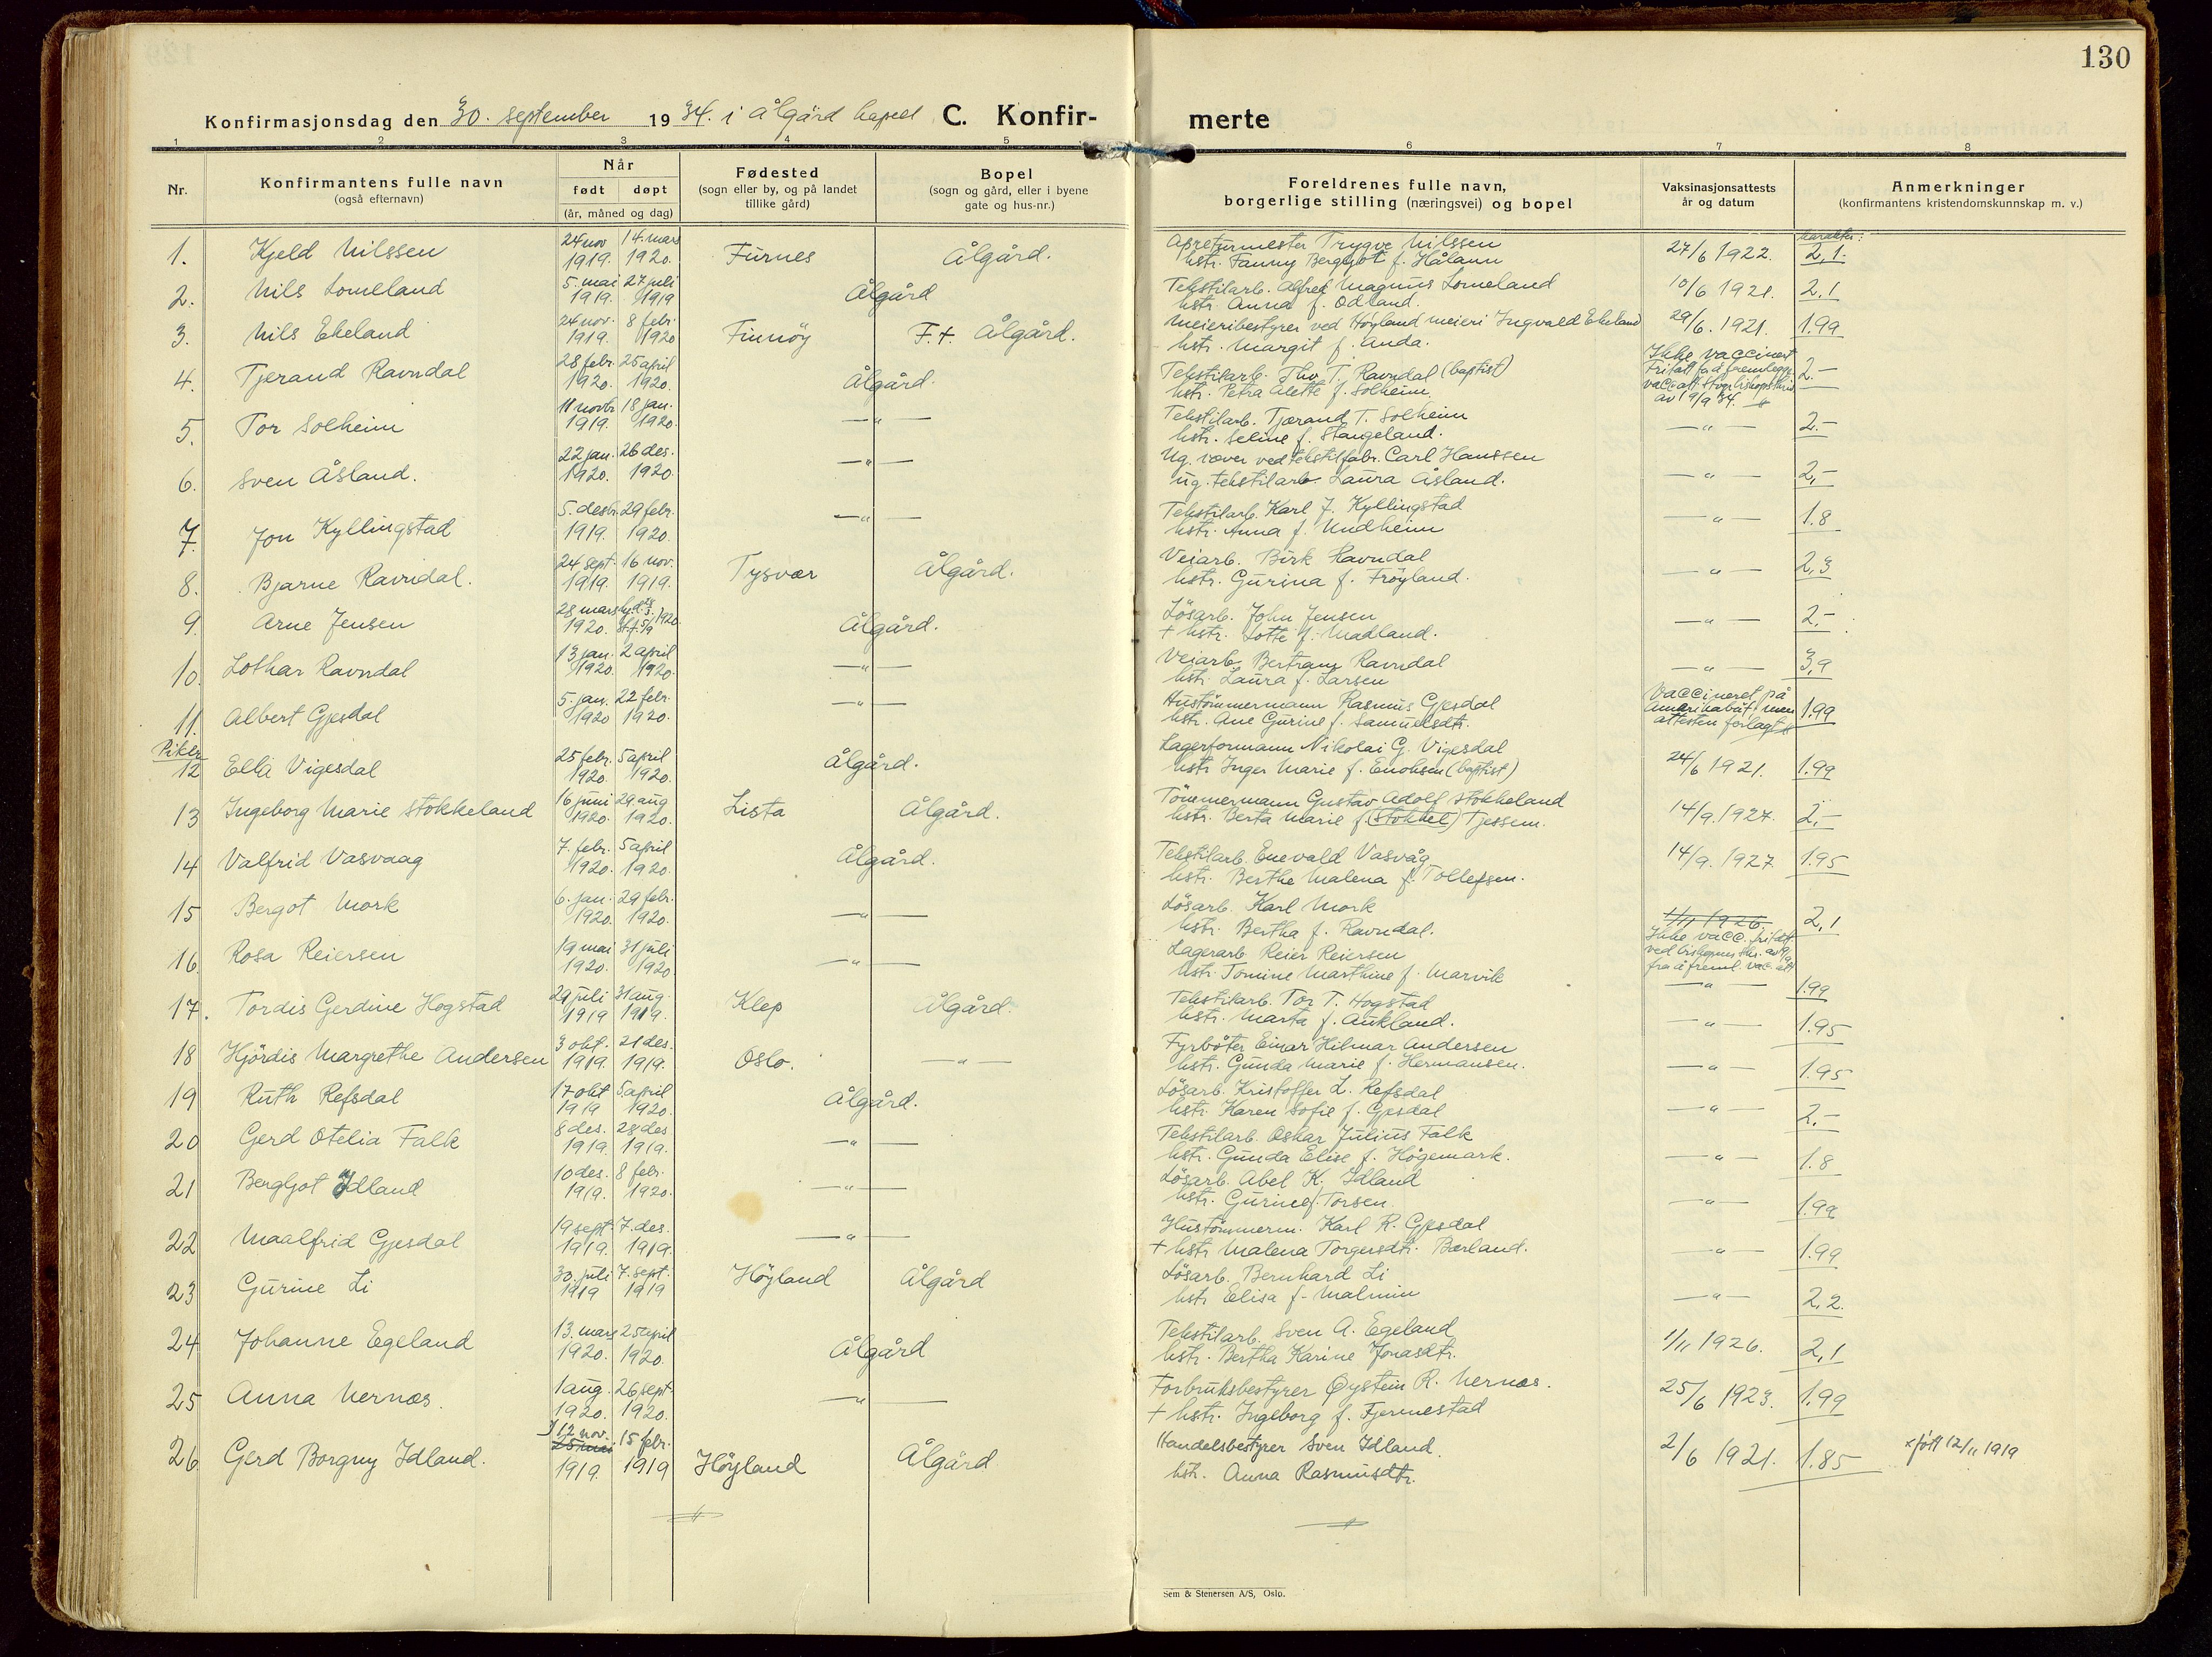 130
Konfirmasjonsdag den 30. september 1934. i Ålgård kapell C. Konfir-
merte
1 2 3 4 5 6 7 8
Nr. Konfirmantens fulle navn (også efternavn) Når født døpt (år, måned og dag) Fødested (sogn eller by, og på landet tillike gård) Bopel (sogn og gård, eller i byene gate og hus-nr.) Foreldrenes fulle navn, borgerlige stilling (næringsvei) og bopel Vaksinasjonsattests år og datum Anmerkninger (konfirmantens kristendomskunnskap m. v.)
karakter:
1. Kjeld Nilssen 24 nov 1919. 14. mars 1920. Furnes Ålgård. Apreturmester Trygve Nilssen 27/6 1922. 2,1.
hstr. Fanny Bergljot f. Hålann
2. Nils Lomeland 5. mai 1919. 27 juli 1919 Ålgård Tekstilarb. Alfred Magnus Lomeland 10/6 1921. 2,1
hstr. Anna f. Odland.
3. Nils Ekeland 24 nov. 1919. 8 febr. 1920 Finnöy F.t. Ålgård. Meieribestyrer ved Höyland meieri Ingvald Ekeland 29/6. 1921. 1.99
hstr. Margit f. Anda.
4. Tjerand Ravndal 28 febr. 1920. 25 april 1920. Ålgård. Tekstilarb. Thv. T. Ravndal (baptist) Ikke vaccinert 2.-
hstr. Petra Alette f. Solheim. Fritatt fra å fremlegge vacc. att. Stvgr. bishopskriv av 19/9 34.
5. Tor Solheim 11 novbr 1919. 18 jan. 1920. —"— Tekstilarb. Tjærand T. Solheim —"— 2.-
hstr. Seline f. Stangeland.
6. Sven Åsland. 22 jan. 1920. 26 des. 1920. —"— Ug. væver ved tekstilfabr. Carl Hanssen —"— 2,-
ug. tekstilarb. Laura Åsland.
7. Jon Kyllingstad 5. desbr. 1919. 29 febr. 1920. —"— Tekstilarb. Karl J. Kyllingstad —"— 1.8
hstr. Anna f. Undheim
8. Bjarne Ravndal. 24 sept. 1919. 16 nov. 1919. Tysvær Ålgård. Veiarb. Birk Ravndal —"— 2,3
hstr. Gurina f. Fröyland.
9. Arne Jensen 28 mars 1920. Ålgård. Lösarb. John Jensen —"— 2.-
+ hstr. Lotte f. Madland.
10. Lothar Ravndal 13 jan. 1920. 2 april 1920. —"— Veiarb. Bertram Ravndal —"— 3,9
hstr. Laura f. Larsen
11. Albert Gjesdal 5. jan. 1920 22 febr. 1920. —"— Hustömmermann Rasmus Gjesdal Vaccineret på amerikabåt, men attesten forlagt 1.99
hstr. Ane Gurine f. Samuelsdtr.
Piker
12 Ella Vigesdal 25 febr. 1920. 5 april 1920. Ålgård. Lagerformann Nikolai G. Vigesdal 24/6 1921. 1.99
hstr. Inger Marie f. Enoksen (baptist)
13 Ingeborg Marie Stokkeland 16 juni 1920. 29 aug 1920. Lista Ålgård. Tömmermann Gustav Adolf Stokkeland 14/9. 1927. 2.-
hstr. Berta Marie f. (Stokkel) Tjessem.
14 Valfrid Vasvaag 7. febr. 1920. 5 april 1920. Ålgård. Tekstilarb. Enevald Vasvåg 14/9. 1927. 1.95
hstr. Berthe Malena f. Tollefsen.
15 Bergot Mork 6. jan. 1920. 29 febr. 1920. —"— Lösarb. Karl Mork 1/11 1926. 2,1
hstr. Bertha f. Ravndal.
16 Rosa Reiersen 19 mai 1920. 31 juli 1920 —"— Lagerarb. Reier Reiersen Ikke vacc. fritatt ved bishopens skr. av 19/9 fra å freml. vac. att —"— 1.99
hstr. Tomine Marthine f. Marvik
17. Tordis Gerdine Hogstad 29 juli 1919 31 aug. 1919. Klep Ålgård. Tekstilarb. Tor T. Hogstad —"— 1.95
hstr. Marta f. Aukland.
18 Hjördis Margrethe Andersen 3 okt. 1919. 21 des. 1919. Oslo. —"— Fyrböter Einar Hilmar Andersen —"— 1.95
hstr. Gunda Marie f. Hermansen.
19 Ruth Refsdal 17 okt 1919 5 april 1920. Ålgård. Lösarb. Kristoffer L. Refsdal —"— 2.-
hstr. Karen Sofie f. Gjesdal
20 Gerd Otelia Falk 8 des. 1919. 28 des 1919. —"— Tekstilarb. Oskar Julius Falk —"— 1.8
hstr. Gunda Elise f. Högemark.
21 Bergljot Idland 10 des. 1919. 8 febr. 1920. —"— Lösarb. Abel K. Idland —"— 1.99
hstr. Gurine f. Torsen
22 Maalfrid Gjesdal 19 sept. 1919. 7. des. 1919. —"— Hustömmerm. Karl R. Gjesdal —"— 1.99
+ hstr. Malena Torgersdtr. Bærland.
23 Gurine Li 30. juli 1919 7. sept. 1919 Höyland Ålgård Lösarb. Bernhard Li —"— 2,2.
hstr. Elisa f. Malmin
24 Johanne Egeland 13. mars 1920. 25 april 1920. Ålgård Tekstilarb. Sven A. Egeland 1/11 1926. 2,1
hstr. Bertha Karine Jonasdtr.
25 Anna Nernæs. 1 aug. 1920. 26 sept. 1920. —"— Forbruksbestyrer Øystein R. Nernæs. 25/6 1923. 1.99
+ hstr. Ingeborg f. Fjermestad
26 Gerd Borgny Idland. 12 nov. 25 mai 1919. 15 febr. 1919 Höyland Ålgård Handelsbestyrer Sven Idland 2/6 1921. 1.85 x fött 12/11 1919
hstr. Anna Rasmusdtr.
Sem & Stenersen A/S, Oslo.